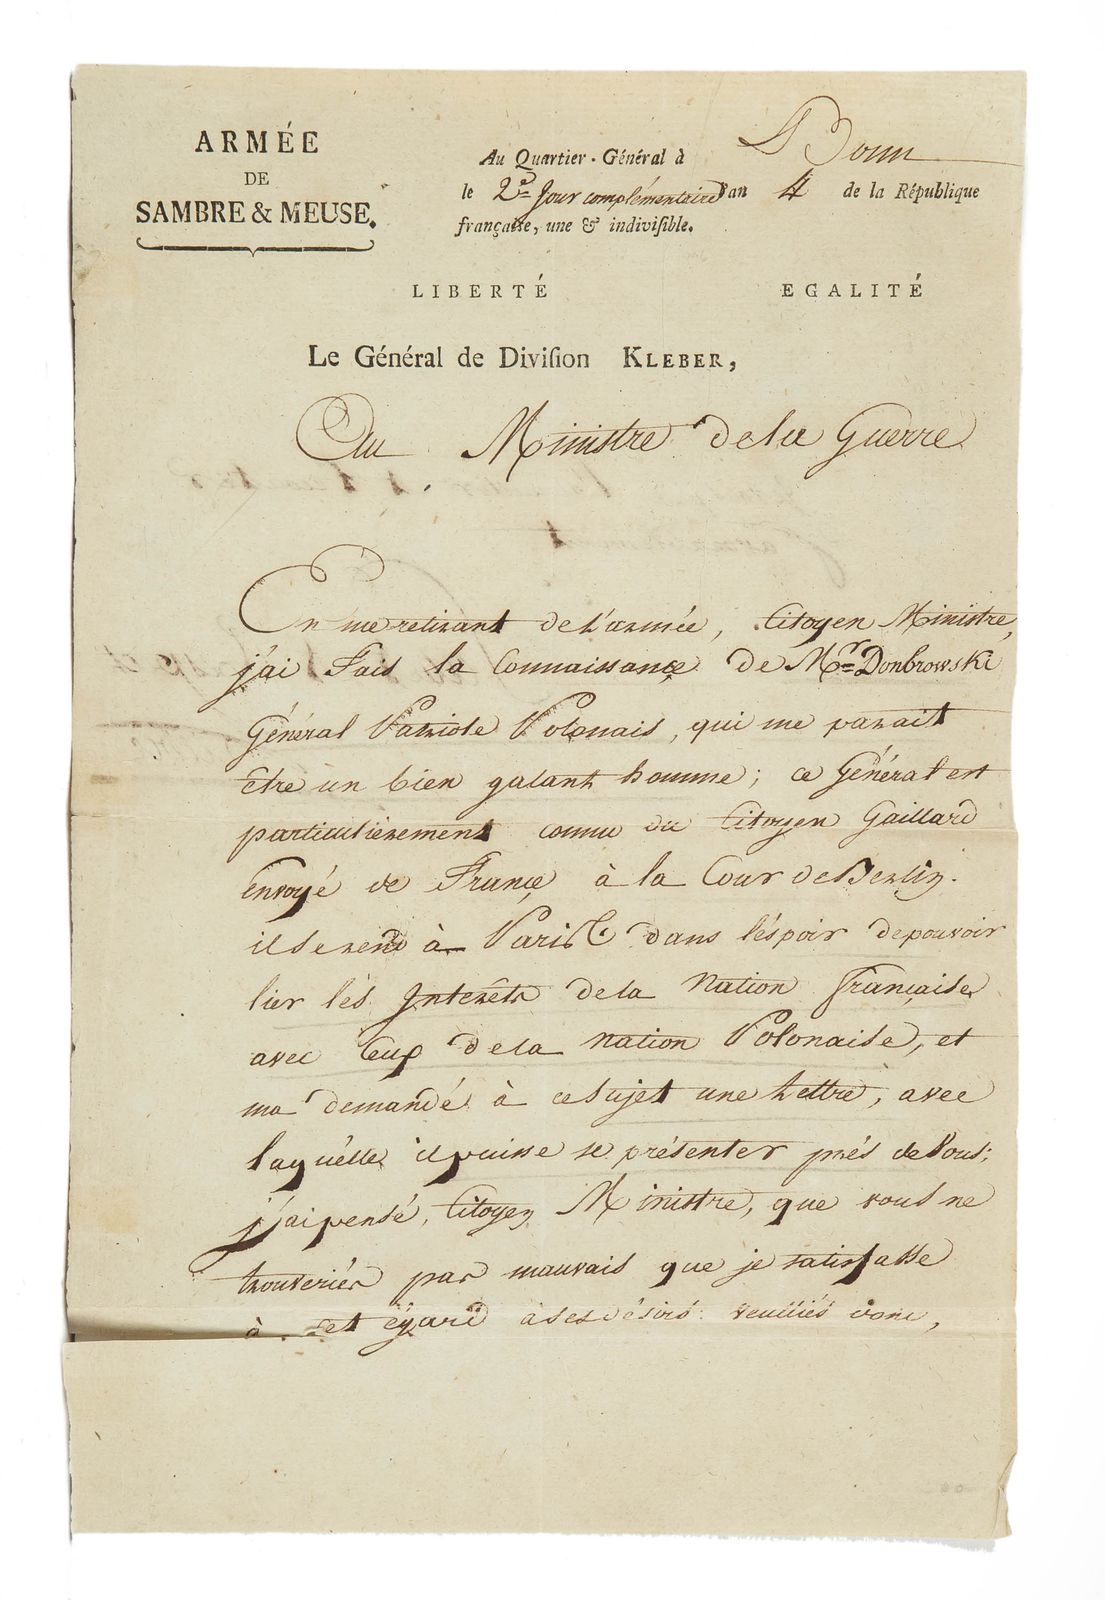 ARMÉE
DE
SAMBRE & MEUSE.
Au Quartier-Général à Bonn
le 2e Jour complémentaire l'an 4 de la République
française, une & indivisible.
LIBERTÉ EGALITÉ
Le Général de Division KLEBER,
Au Ministre de la Guerre
En me retirant de l'armée, Citoyen Ministre,
j'ai fais la Connaissance de Mr Donbrowski
Général Patriote Polonais, qui me parait
etre un bien galant homme; ce Général est
particulièrement connu du Citoyen Gaillard
Envoyé de France à la Cour de Berlin.
il se rend à Paris dans l'éspoir de pouvoir
lier lés Interêts de la Nation française
avec Ceux de la nation Polonaise, et
ma demandé à ce Sujet une Lettre, avec
laquélle il puisse se présenter prés de Vous;
j'ai pensé, Citoyen Ministre, que vous ne
trouveriés pas mauvais que je satisfasse
à cet égard à ses désirs. veuillés donc,